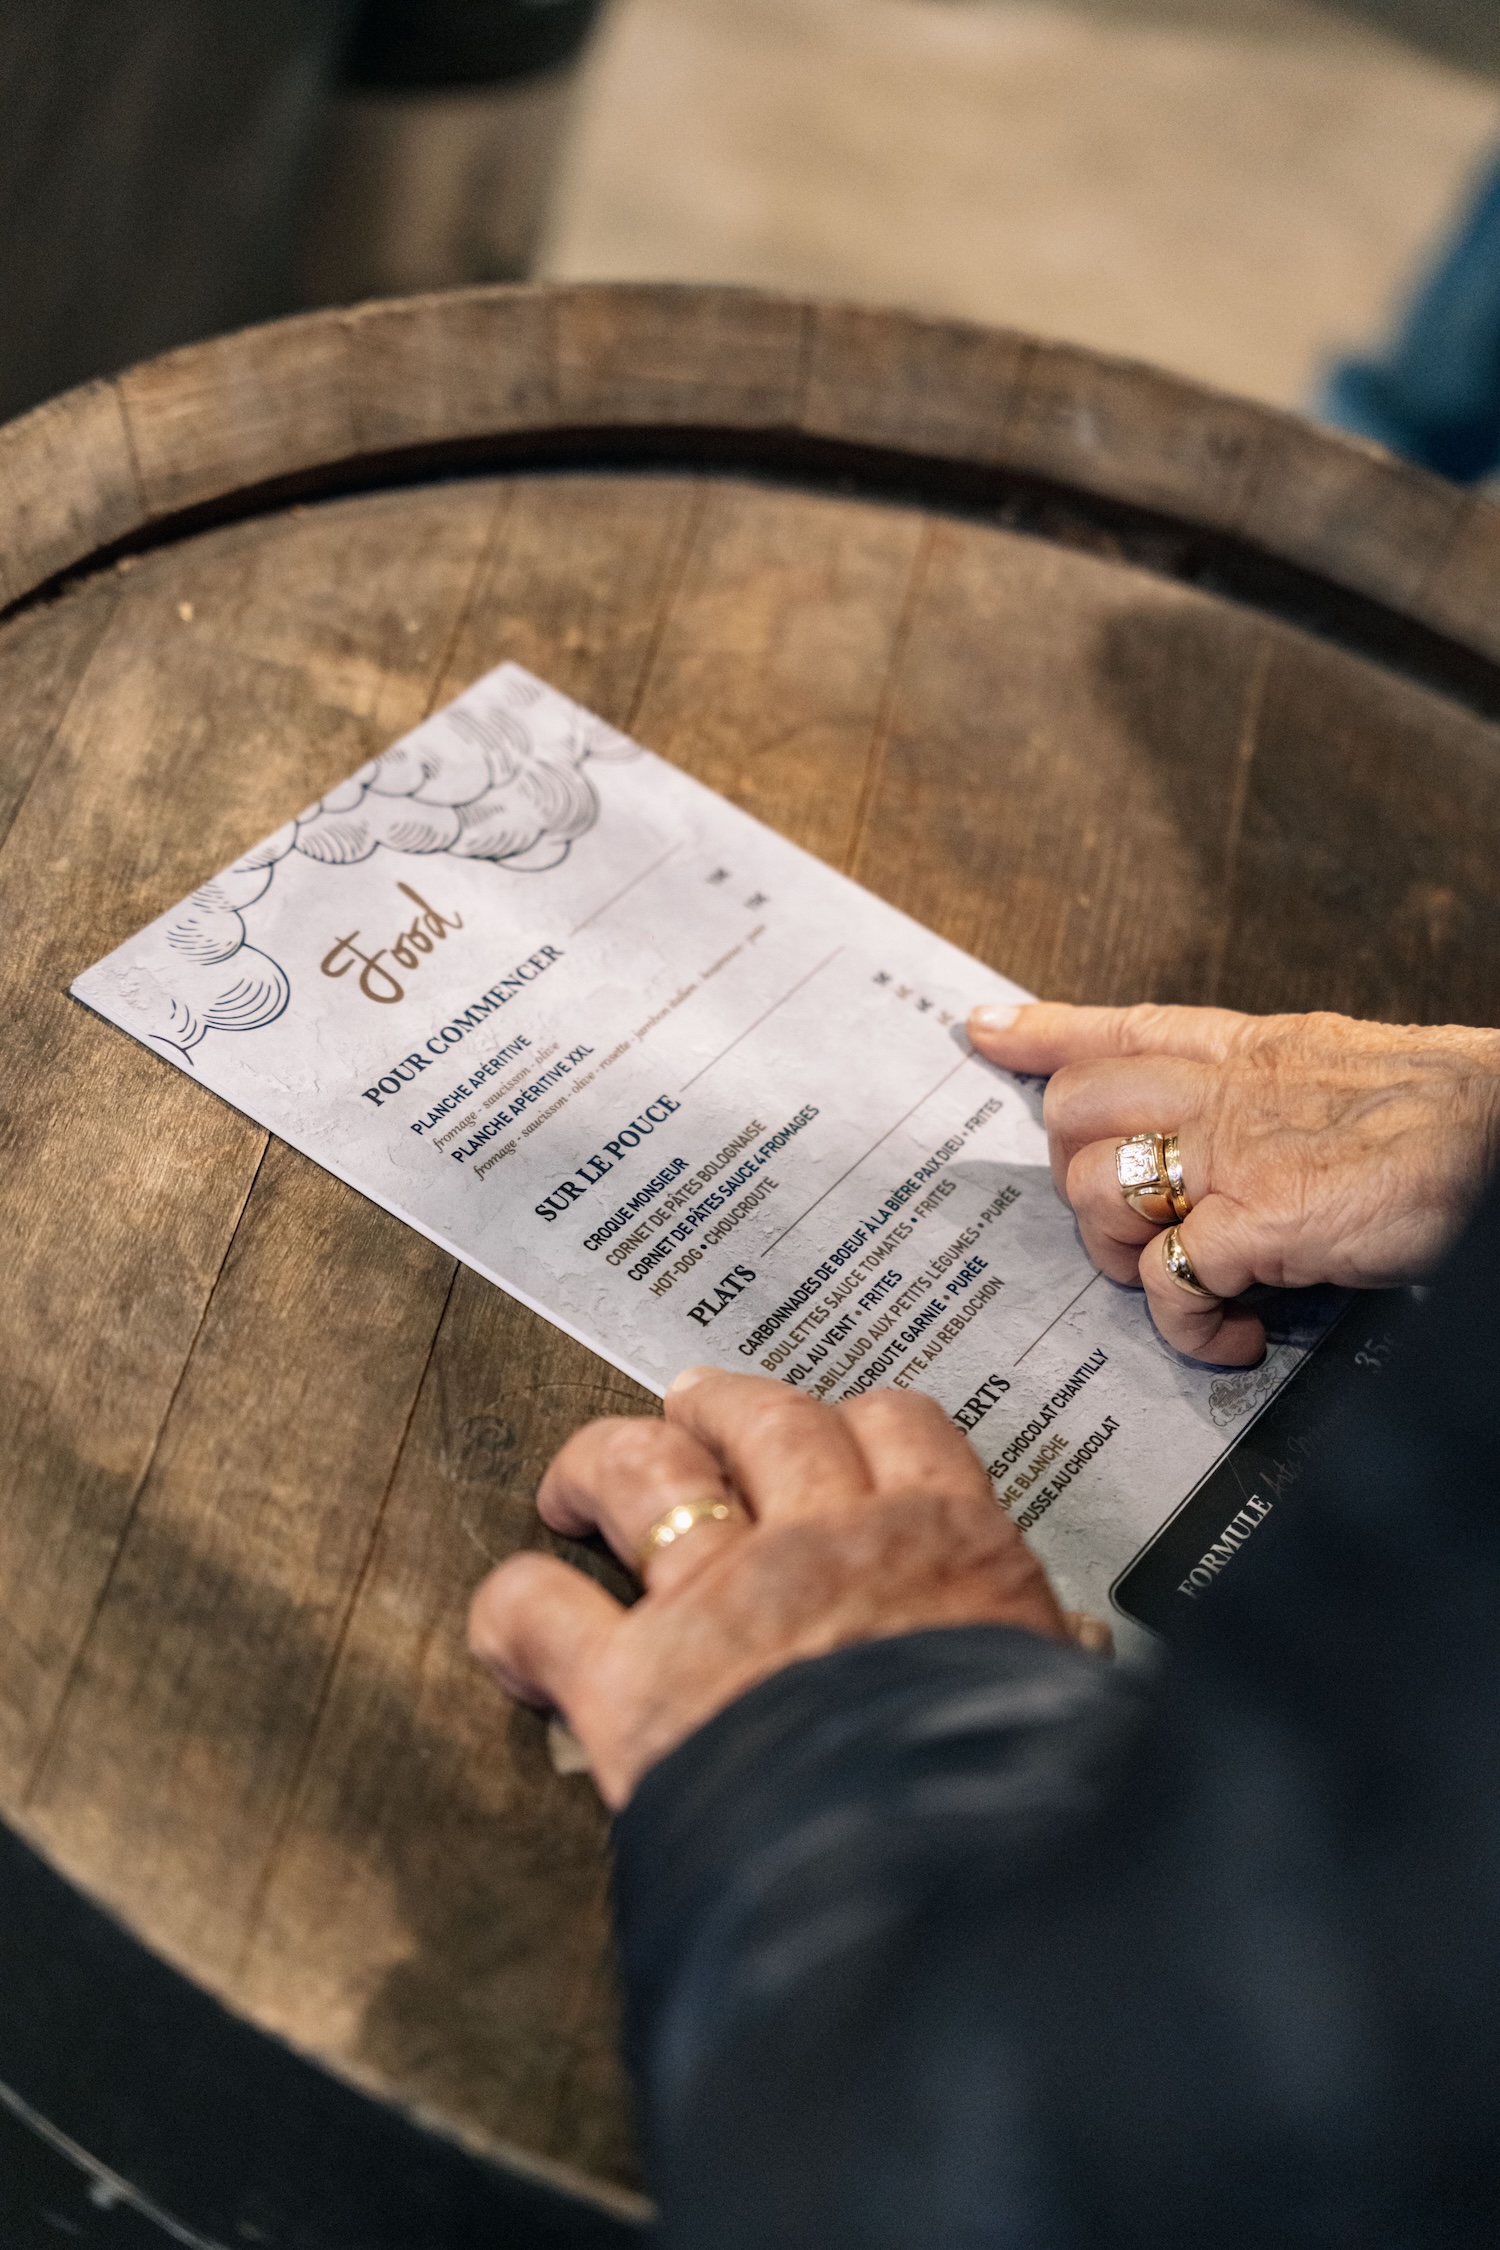 Food
POUR COMMENCER
PLANCHE APÉRITIVE
fromage - saucisson - olive
PLANCHE APÉRITIVE XXL
fromage - saucisson - olive - rosette - jambon italien
SUR LE POUCE
CROQUE MONSIEUR
CORNET DE PÂTES BOLOGNAISE
CORNET DE PÂTES SAUCE 4 FROMAGES
HOT-DOG • CHOUCROUTE
PLATS
CARBONNADES DE BOEUF À LA BIÈRE PAIX DIEU • FRITES
BOULETTES SAUCE TOMATES • FRITES
VOL AU VENT • FRITES
CABILLAUD AUX PETITS LÉGUMES • PURÉE
HOUCROUTE GARNIE • PURÉE
LETTE AU REBLOCHON
SERTS
ES CHOCOLAT CHANTILLY
AME BLANCHE
OUSSE AU CHOCOLAT
FORMULE
35